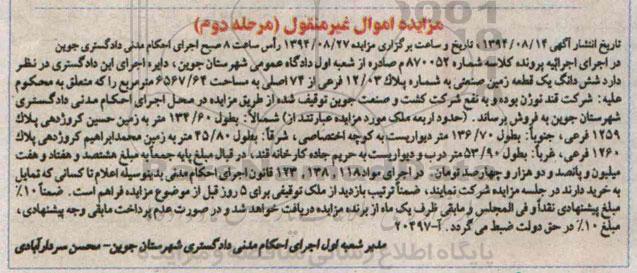 مزایده اموال غیرمنقول (مرحله دوم)
تاریخ انتشار آگهی ۱۳۹۴/۰۸/۱۴ ، تاریخ و ساعت برگزاری مزایده ۱۳۹۴/۰۸/۲۷ رأس ساعت ۸ صبح اجرای احکام مدنی دادگستری جوین
در اجرای اجرائیه پرونده کلاسه شماره ۸۷۰۰۵۲م صادره از شعبه اول دادگاه عمومی شهرستان جوین ، دایره اجرای این دادگستری در نظر
دارد شش دانگ یک قطعه زمین صنعتی به شماره پلاک ۱۲/۰۳ فرعی از ۷۴ اصلی به مساحت ۶۵۶۷/۶۴ مترمربع را که متعلق به محکوم
علیه: شرکت قند نوژن بوده و به نفع شرکت کشت و صنعت جوین توقیف شده از طریق مزایده در محل اجرای احکام مدنی دادگستری
شهرستان جوین به فروش برساند . (حدود اربعه ملک مورد مزایده عبارتند از) شمالاً: بطول ۱۳۴/۶۰ متر به زمین حسین کروژدهی پلاک
۱۲۵۹ فرعی، جنوباً: بطول ۱۳۶/۷۰ متر دیواریست به کوچه اختصاصی ، شرقاً: بطول ۴۵/۸۰ متر به زمین محمدابراهیم کروژدهی پلاک
۱۲۶۰ فرعی، غرباً: بطول ۵۳/۹۰ متر درب و دیواریست به حریم جاده کارخانه قند، در قبال مبلغ پایه جمعاً به مبلغ هشتصد و هفتاد و هفت
میلیون و پانصد و دو هزار و چهارصد تومان در اجرای مواد ۱۱۸ ، ۱۳۸ ، ۱۲۳ قانون اجرای احکام مدنی بدینوسیله اعلام تا کسانی که تمایل
به خرید دارند در جلسه مزایده شرکت نمایند، ضمناً ترتیب بازدید از ملک توقیفی برای ۵ روز قبل از موضوع مزایده فراهم است . ضمناً ۱۰٪
مبلغ پیشنهادی نقداً و فی المجلس و مابقی ظرف یک ماه از برنده مزایده دریافت خواهد شد و در صورت عدم پرداخت مابقی وجه پیشنهادی،
مبلغ ۱۰٪ در حق دولت ضبط می گردد . آ-۲۰۴۹۷
مدیر شعبه اول اجرای احکام مدنی دادگستری شهرستان جوین- محسن سردارآبادی